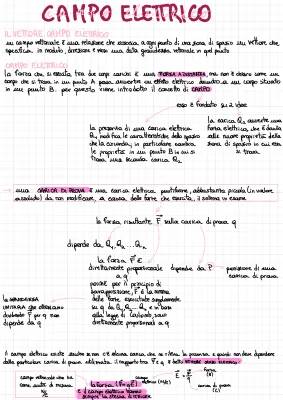 CAMPO ELETTRICO
IL VETTORE CAMPO ELETTRICO
un campo vettoriale è una relazione che associa a ogni punto di una zona di spazio un vettore che
specifica in modulo, direzione e verso una data grandezza vettoriale in quel punto
CAMPO ELETTRICO
la forza che si esercita tra due corpi carichi è una FORZA A DISTANZA, ma non è chiaro come un
corpo che si trova in un punto A possa avvertire un effetto elettrico dovuto a un corpo situato
in un punto B. per questo viene introdotto il concetto di CAMPO
esso è fondato su 2 idee
la presenza di una carica elettrica
Q₁ modifica le caratteristiche dello spazio
che la circonda, in particolare cambia
le proprietà in un punto B in cui si
trova una seconda carica Q₂
la carica Q₂ avverte una
forza elettrica, che è dovuta
alle nuove proprietà della
zona di spazio in cui essa
si trova
una CARICA DI PROVA è una carica elettrica puntiforme, abbastanza piccola (in valore
assoluto) da non modificare, a causa delle forze che esercita, il sistema in esame
la forza risultante F⃗ sulla carica di prova q
dipende da Q₁, Q₂ ... Qₙ
la forza F⃗ è
direttamente proporzionale
a q
perché per il principio di
sovrapposizione, F⃗ è la somma
delle forze esercitate singolarmente
su q da Q₁, Q₂ ... Qₙ e in base
alla legge di Coulomb, sono
direttamente proporzionali a q
dipende da P
posizione di una
carica di prova
la grandezza
unitaria che otteniamo
dividendo F⃗ per q non
dipende da q
il campo elettrico esiste anche se non c'è alcuna carica che ne riveli la presenza e quindi non deve dipendere
dalla particolare carica di prova utilizzata. il rapporto tra F⃗ e q è detto vettore campo elettrico
campo vettoriale che ha
come unità di misura
N/C
la forza (F⃗ = qE⃗)
e il campo elettrico hanno
sempre la stessa direzione
campo
elettrico (N/C)
E⃗ = F⃗/q
forza
(N)
carica di prova
(C)